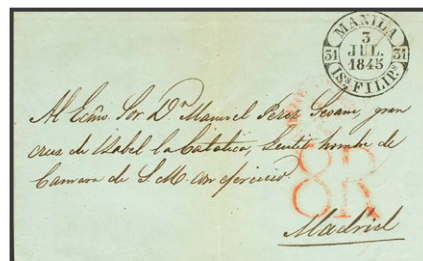 MANILA
31 3 JUL. 1845 31
IS.s FILIP.s
Al Ecsmo. Sor. Dn. Manuel Perez Seoane, gran
cruz de Isabel la Catolica, Gentil hombre de
Camara de S. M. con ejercicio.
8R
Madrid